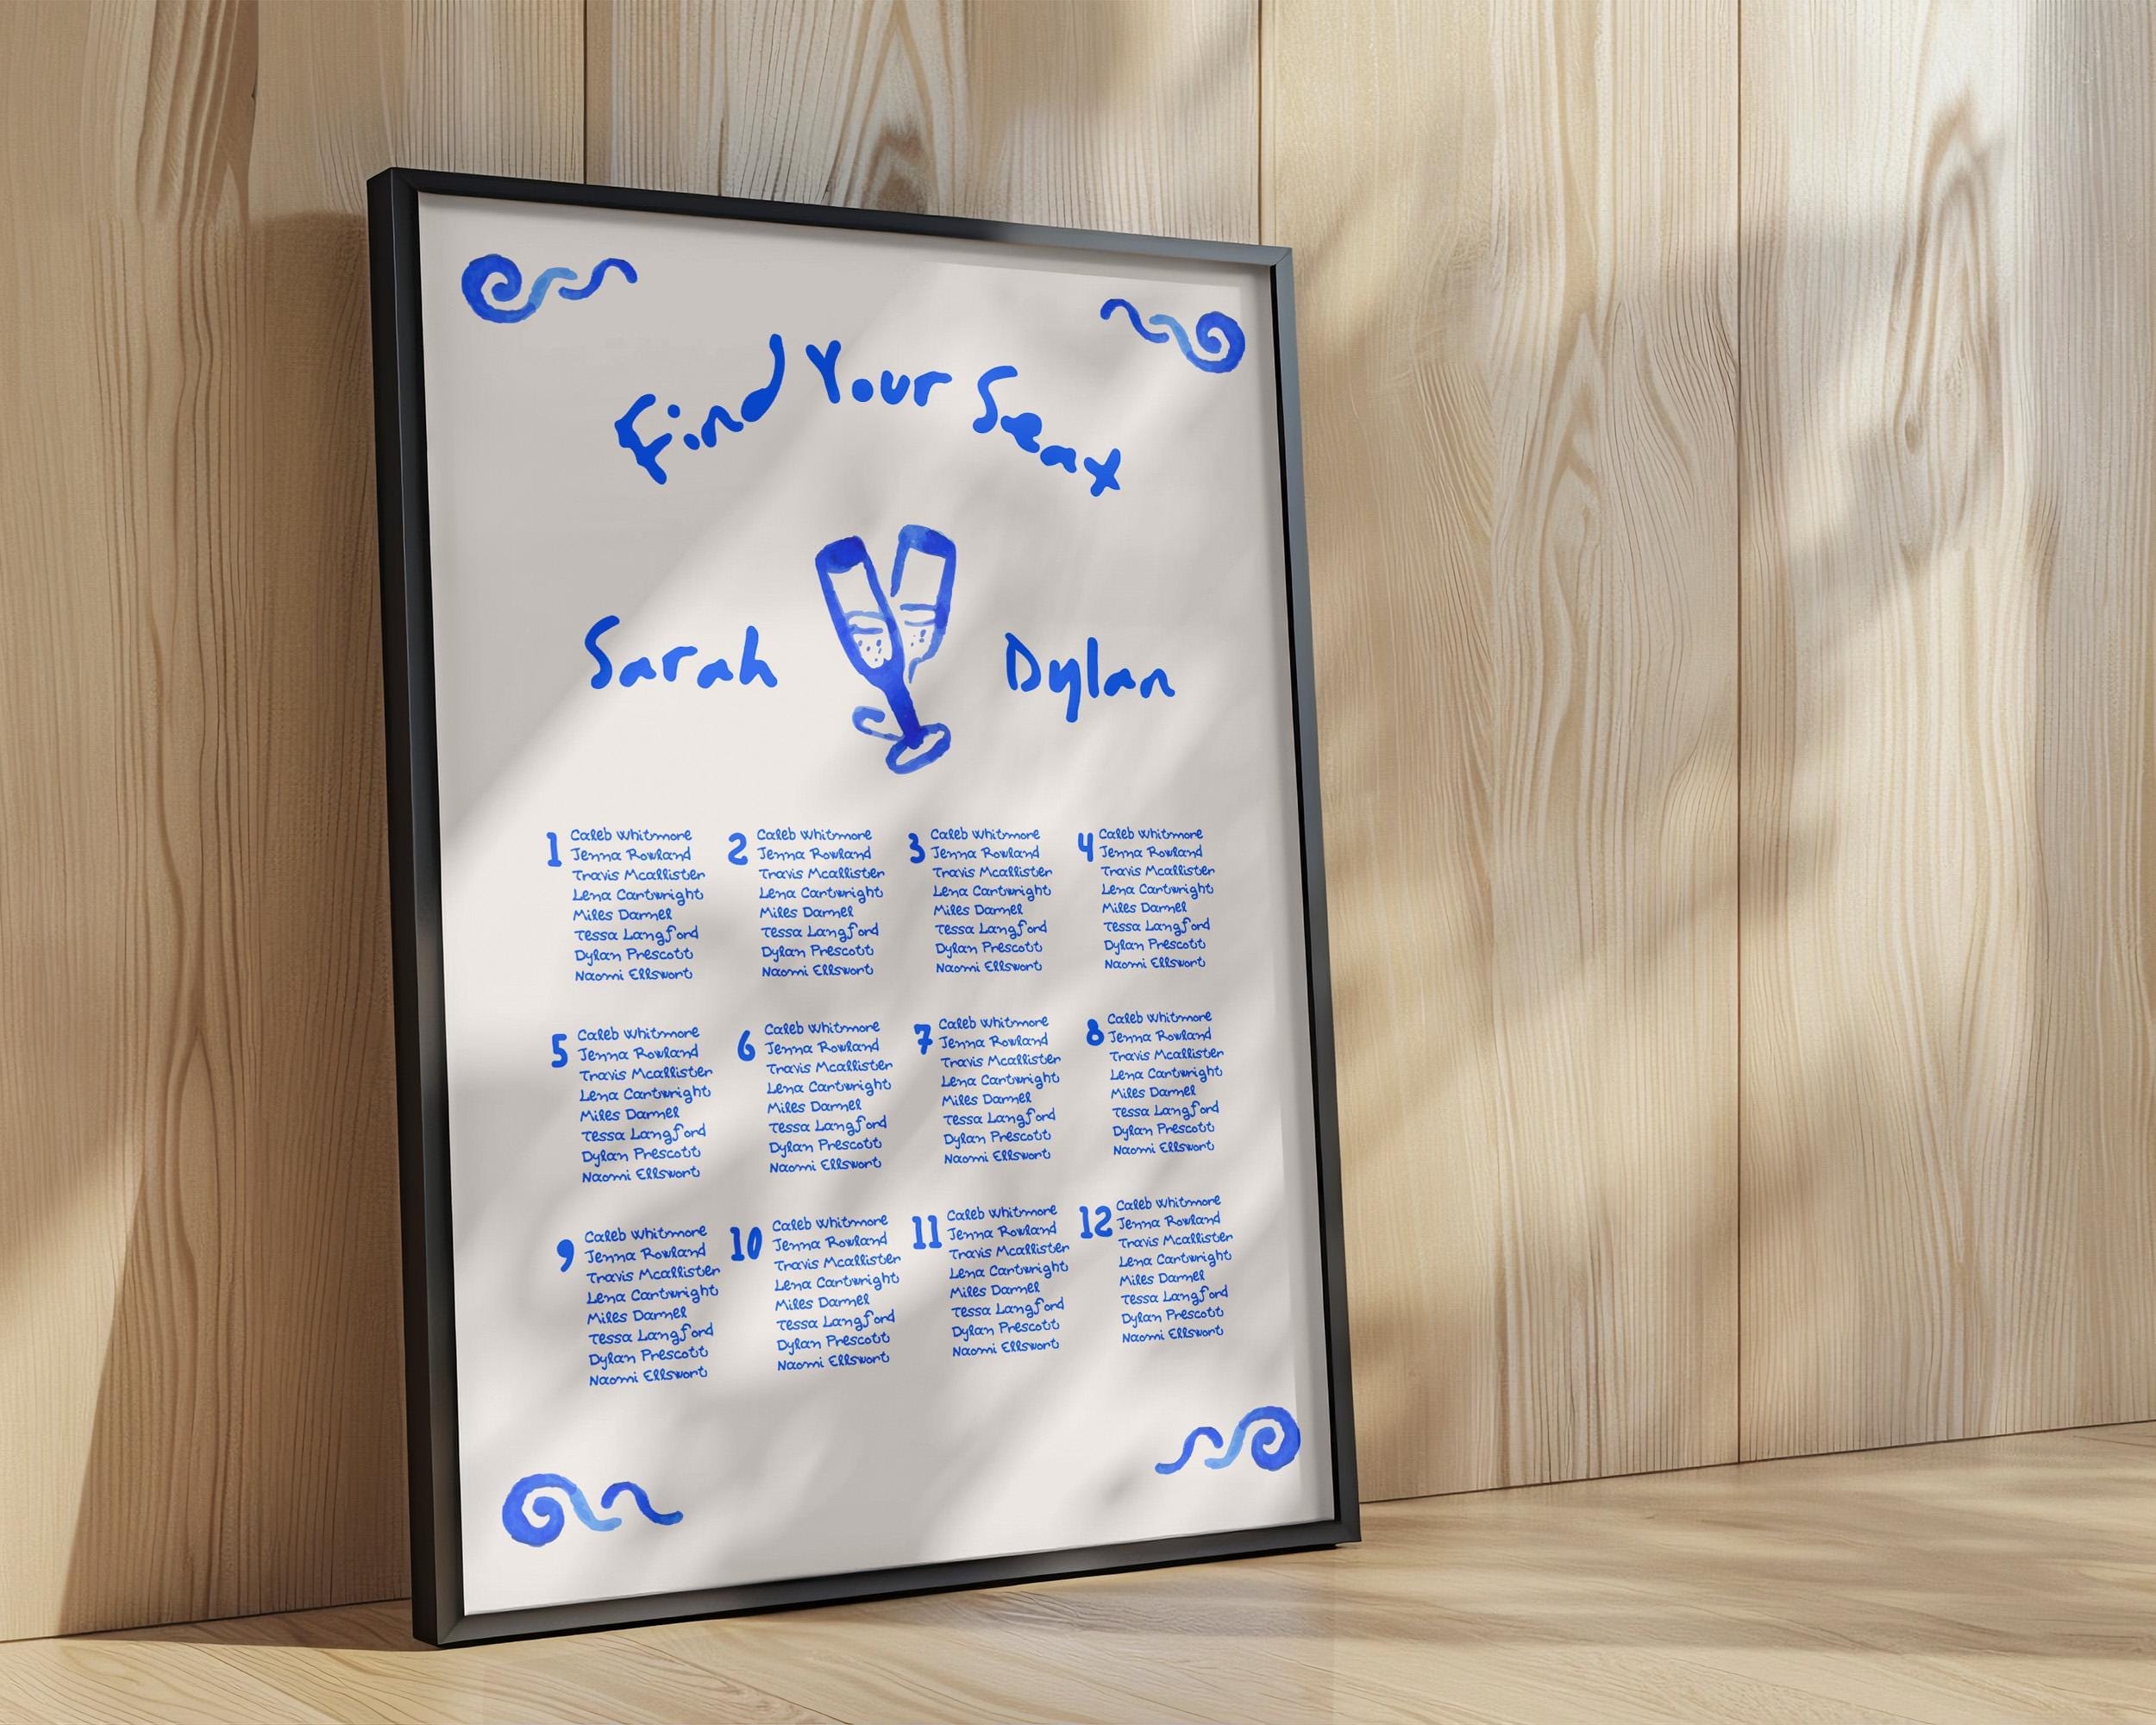 Find Your Seat
Sarah
Dylan
1
Caleb Whitmore
Jenna Rowland
Travis Mcallister
Lena Cartwright
Miles Darnel
Tessa Langford
Dylan Prescott
Naomi Ellswort
2
Caleb Whitmore
Jenna Rowland
Travis Mcallister
Lena Cartwright
Miles Darnel
Tessa Langford
Dylan Prescott
Naomi Ellswort
3
Caleb Whitmore
Jenna Rowland
Travis Mcallister
Lena Cartwright
Miles Darnel
Tessa Langford
Dylan Prescott
Naomi Ellswort
4
Caleb Whitmore
Jenna Rowland
Travis Mcallister
Lena Cartwright
Miles Darnel
Tessa Langford
Dylan Prescott
Naomi Ellswort
5
Caleb Whitmore
Jenna Rowland
Travis Mcallister
Lena Cartwright
Miles Darnel
Tessa Langford
Dylan Prescott
Naomi Ellswort
6
Caleb Whitmore
Jenna Rowland
Travis Mcallister
Lena Cartwright
Miles Darnel
Tessa Langford
Dylan Prescott
Naomi Ellswort
7
Caleb Whitmore
Jenna Rowland
Travis Mcallister
Lena Cartwright
Miles Darnel
Tessa Langford
Dylan Prescott
Naomi Ellswort
8
Caleb Whitmore
Jenna Rowland
Travis Mcallister
Lena Cartwright
Miles Darnel
Tessa Langford
Dylan Prescott
Naomi Ellswort
9
Caleb Whitmore
Jenna Rowland
Travis Mcallister
Lena Cartwright
Miles Darnel
Tessa Langford
Dylan Prescott
Naomi Ellswort
10
Caleb Whitmore
Jenna Rowland
Travis Mcallister
Lena Cartwright
Miles Darnel
Tessa Langford
Dylan Prescott
Naomi Ellswort
11
Caleb Whitmore
Jenna Rowland
Travis Mcallister
Lena Cartwright
Miles Darnel
Tessa Langford
Dylan Prescott
Naomi Ellswort
12
Caleb Whitmore
Jenna Rowland
Travis Mcallister
Lena Cartwright
Miles Darnel
Tessa Langford
Dylan Prescott
Naomi Ellswort